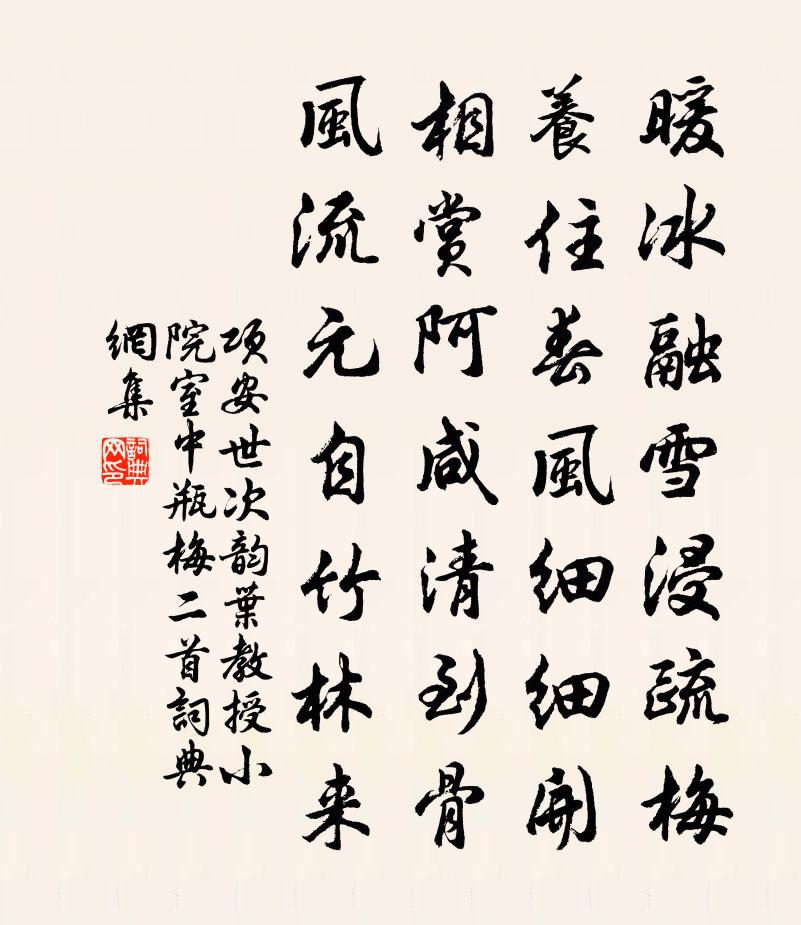 暖冰融雪浸疏梅
養住春風細細開
相賞阿咸清到骨
風流元自竹林来
項安世次韵葉教授小
院室中瓶梅二首詞典
網集
詞典
网印